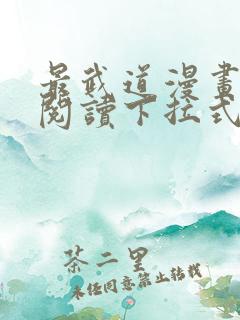 最武道漫畫
閱讀下拉式
茶二里
未经同意禁止转载